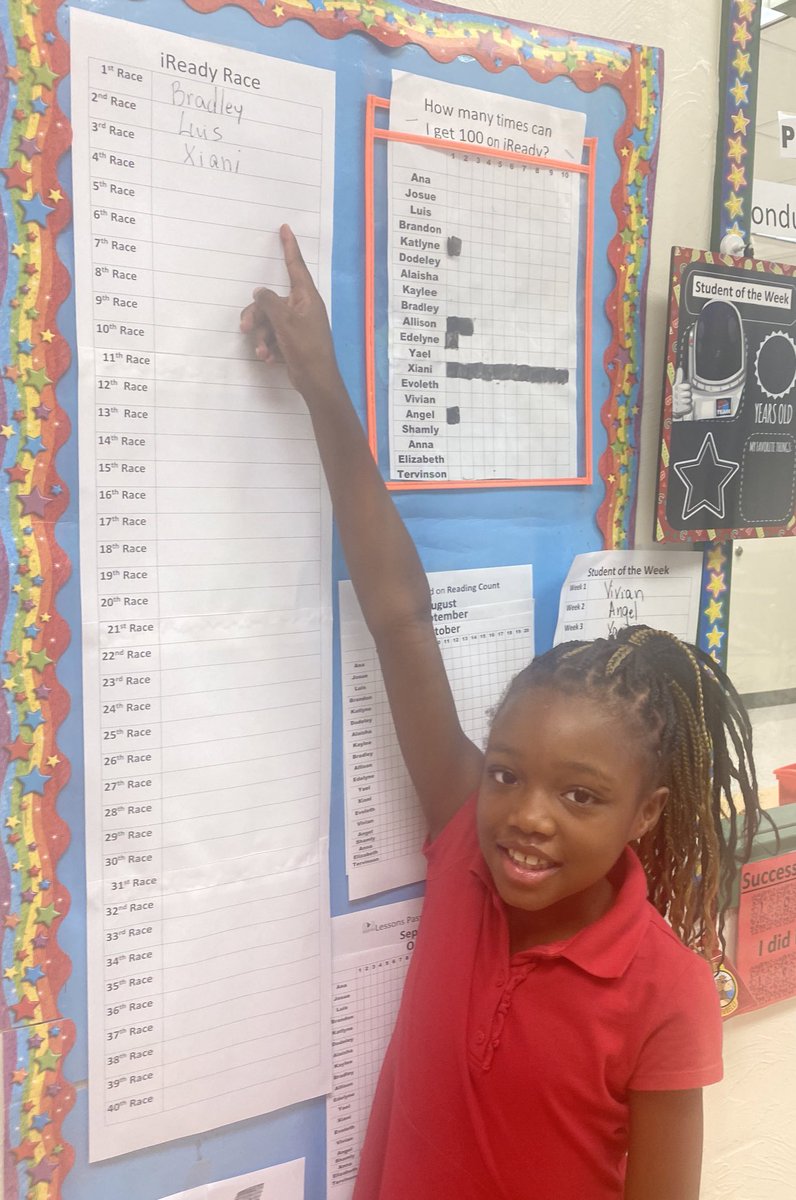 iReady Race
1st Race Bradley
2nd Race Luis
3rd Race Xiani
4th Race
5th Race
6th Race
7th Race
8th Race
9th Race
10th Race
11th Race
12th Race
13th Race
14th Race
15th Race
16th Race
17th Race
18th Race
19th Race
20th Race
21st Race
22nd Race
23rd Race
24th Race
25th Race
26th Race
27th Race
28th Race
29th Race
30th Race
31st Race
32nd Race
33rd Race
34th Race
35th Race
36th Race
37th Race
38th Race
39th Race
40th Race
How many times can
I get 100 on iReady?
1 2 3 4 5 6 7 8 9 10
Ana
Josue
Luis
Brandon
Katlyne
Dodeley
Alaisha
Kaylee
Bradley
Allison
Edelyne
Yael
Xiani
Evoleth
Vivian
Angel
Shamly
Anna
Elizabeth
Tervinson
Student of the Week
TEAM
YEARS OLD
MY FAVORITE THINGS
Student of the Week
Week 1 Vivian
Week 2 Angel
Week 3
d on Reading Count
ugust
tember
tober
11 12 13 14 15 16 17 18 19 20
Ana
Josue
Luis
Brandon
Katlyne
Dodeley
Alaisha
Kaylee
Bradley
Allison
Edelyne
Yael
Xiani
Evoleth
Vivian
Angel
Shamly
Anna
Elizabeth
Tervinson
Lessons Pas
Sep
O
1 2 3 4 5 6 7 8
Ana
Josue
Luis
Brandon
Katlyne
Dodeley
Alaisha
Kaylee
Bradley
Allison
Edelyne
Yael
Xiani
Evoleth
Vivian
Angel
Shamly
Anna
Elizabeth
Tervinson
P
ondu
Success
I did